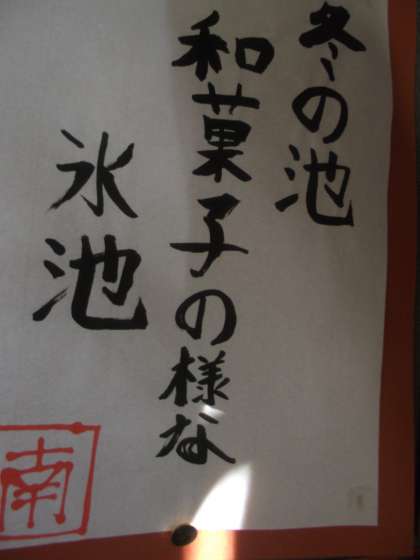 冬の池
和菓子の様な
氷池
南